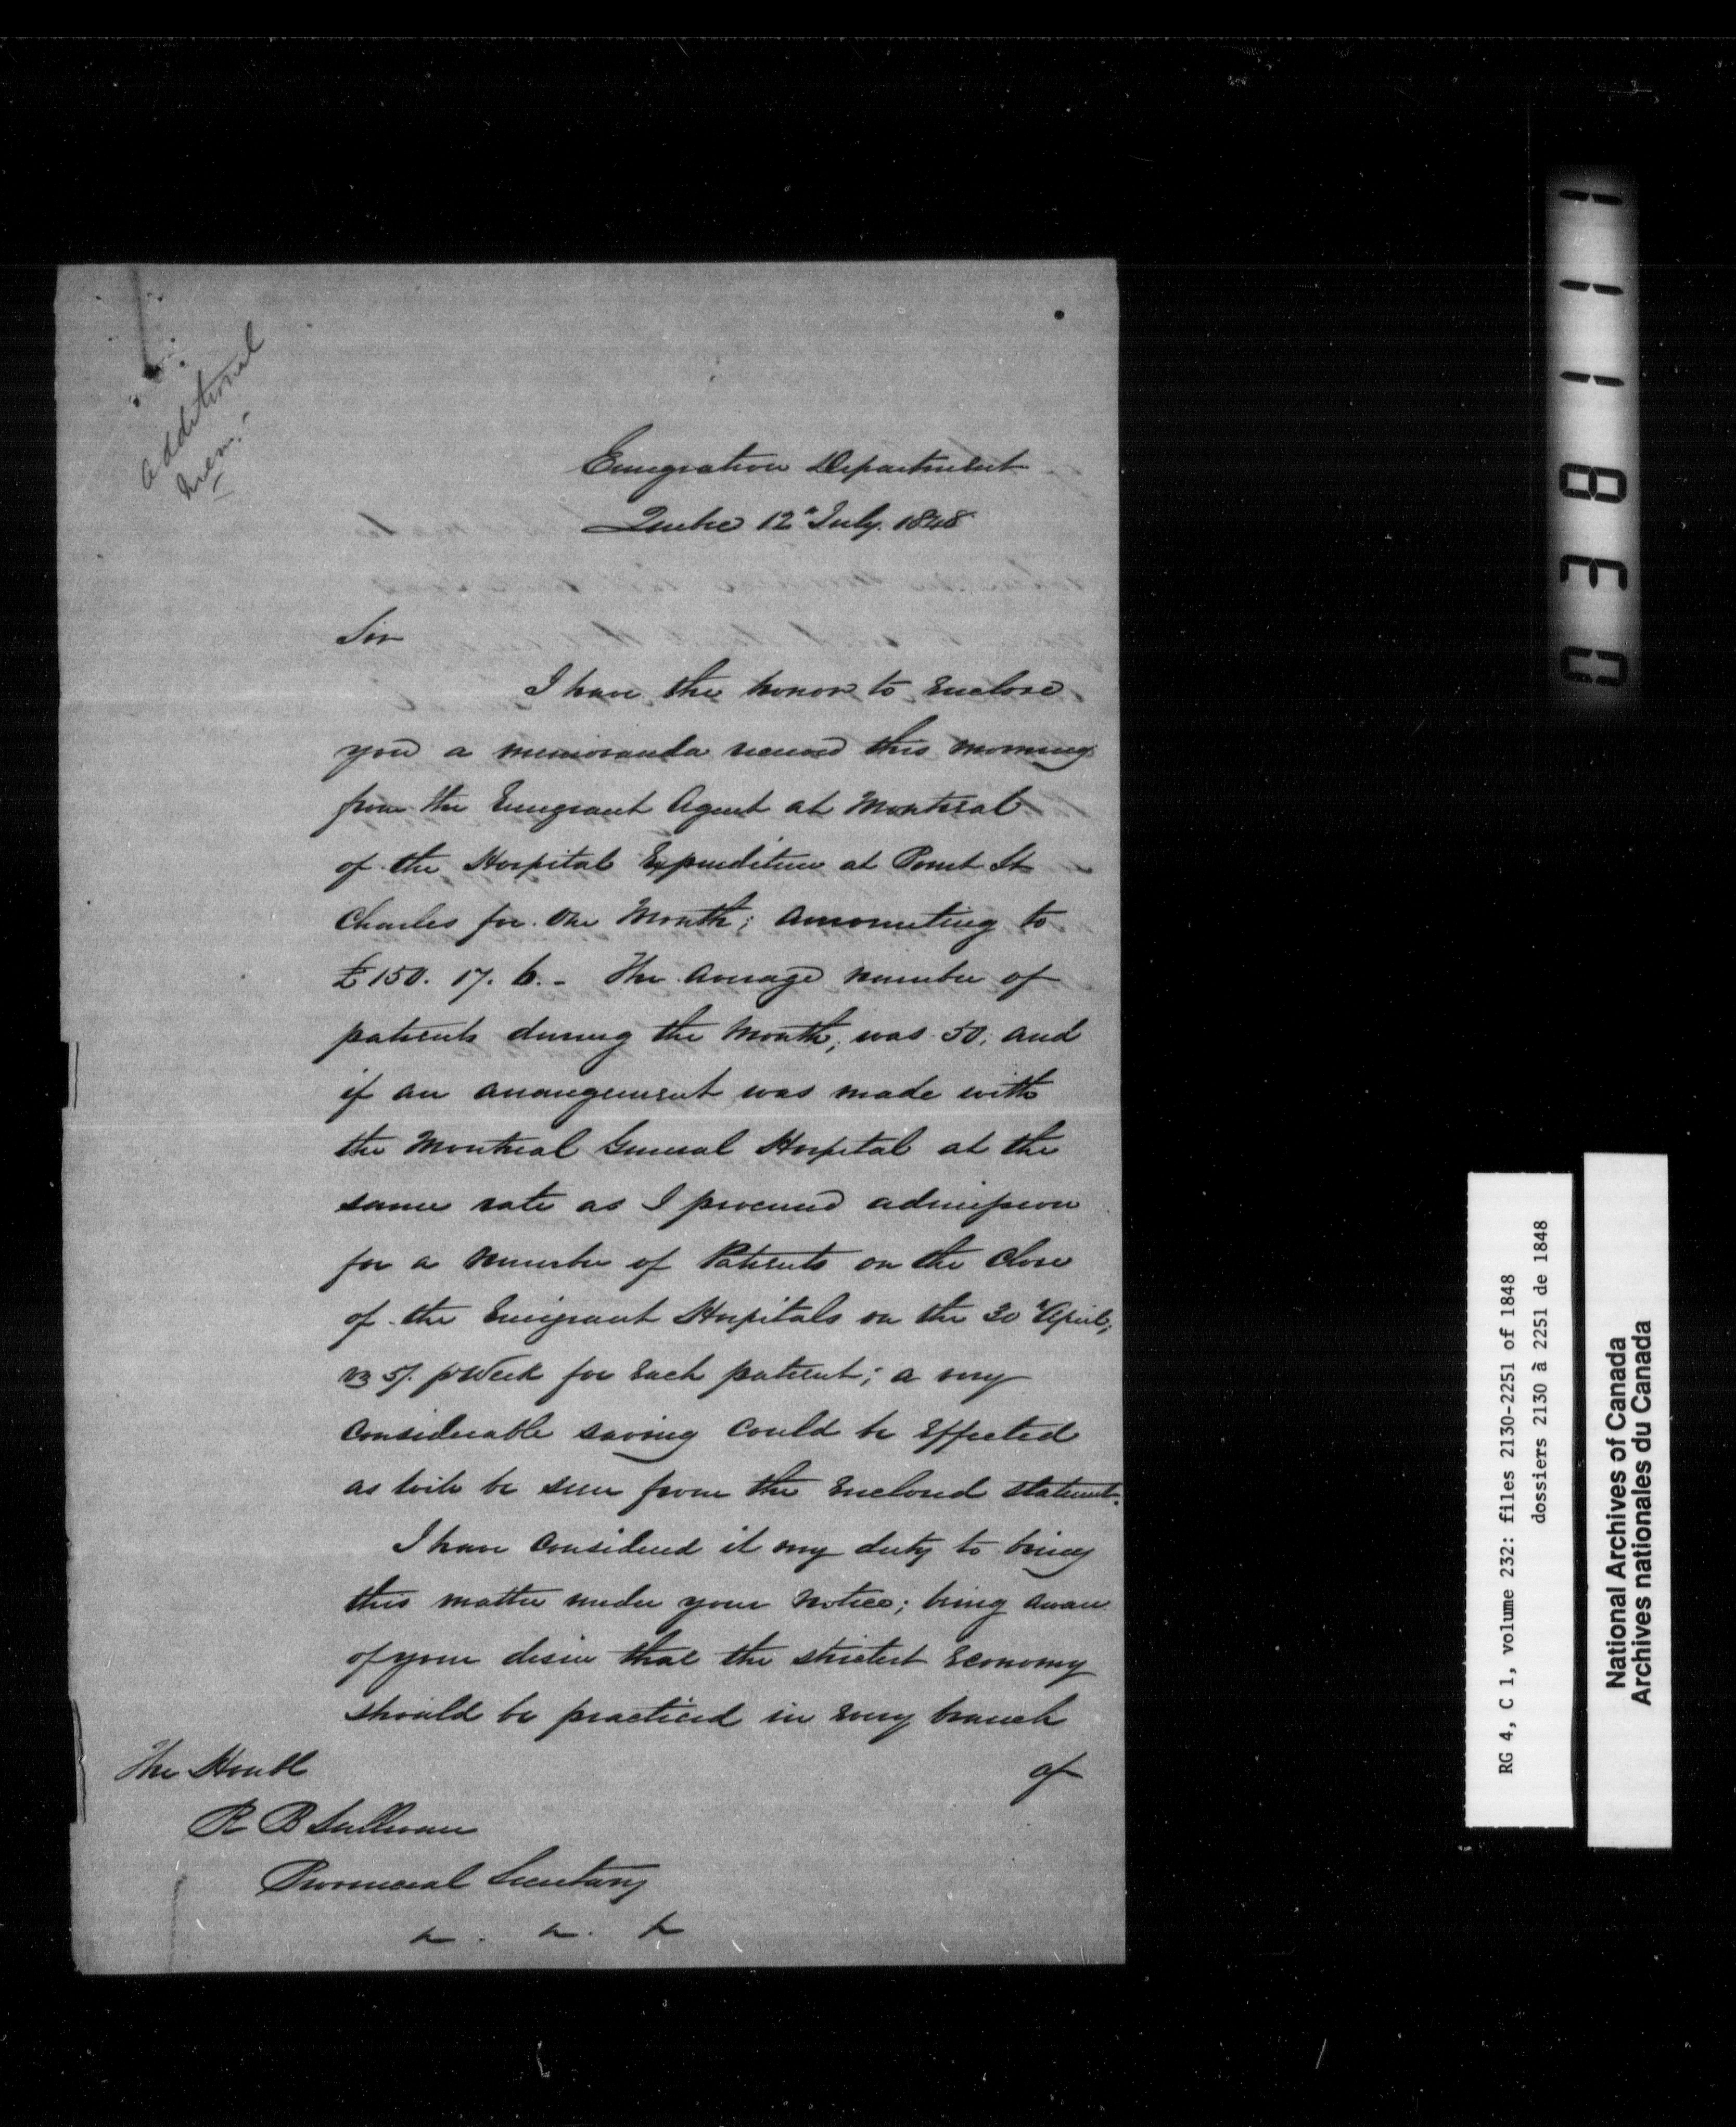 Additional
Mem.
Emigration Department
Quebec 12th July. 1848
Sir
I have the honor to enclose
you a memoranda received this morning
from the Emigrant Agent at Montreal
of the Hospital Expenditure at Point St
Charles for One Month; amounting to
£150. 17. 6. - The average number of
patients during the Month, was 50; and
if an arrangement was made with
the Montreal General Hospital at the
same rate as I procured admission
for a number of Patients on the close
of the Emigrant Hospitals on the 30th April;
viz 5/. pr Week for each patient; a very
considerable saving could be effected
as will be seen from the enclosed statement.
I have considered it my duty to bring
this matter under your notice; being aware
of your desire that the strictest economy
should be practiced in every branch
of
The Honbl
R B Sullivan
Provincial Secretary
038111
RG 4, C 1, volume 232: files 2130-2251 of 1848
dossiers 2130 à 2251 de 1848
National Archives of Canada
Archives nationales du Canada